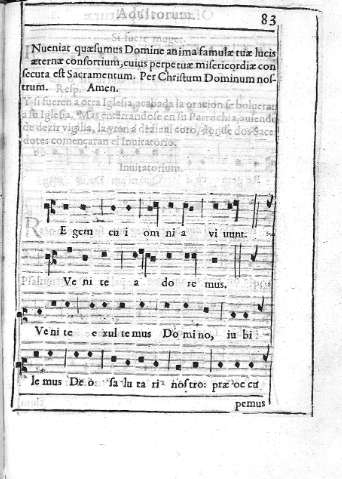 Adultorum. 83
Si fuere muger.
INueniat quæsumus Domine anima famulæ tuæ lucis
æternæ consortium, cuius perpetuæ misericordiæ con
secuta est Sacramentum. Per Christum Dominum nos-
trum. Resp. Amen.
Y si fueren a otra Iglesia, acabada la oracion se bolueran
a su Iglesia. Mas enterrandose en su Parrochia, auiendo
de dezir vigilia, la yran a dezir al coro, donde dos Sacer
dotes començaran el Inuitatorio.
Inuitatorium.
REgem cui omnia viuunt.
Venite adoremus.
Venite exultemus Domino, iubi
lemus Deo salutari nostro: præoccu
pemus